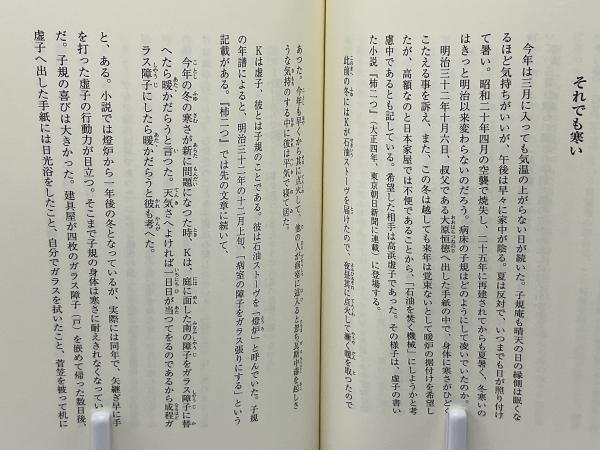 それでも寒い
今年は三月に入っても気温の上がらない日が続いた。子規庵も晴天の日の縁側は眠くな
るほど気持ちがいいが、午後は早々に家中が陰る。夏は反対で、いつまでも日が照り付け
て暑い。昭和二十年四月の空襲で焼失し、二十五年に再建されてからも夏暑く、冬寒いの
はきっと明治以来変わらないのだろう。病床の子規はどのようにして凌いでいたのか。
明治三十二年十月六日、叔父である大原恒徳へ出した手紙の中で、身体に寒さがひどく
こたえる事を訴え、また、この冬は越しても来年は覚束ないとして暖炉の据付けを希望し
たが、高額なのと日本家屋では不便であることから、「石油を焚く機械」にしようかと考
慮中であるとも記している。希望した相手は高浜虚子であった。その様子は、虚子の書い
た小説『柿二つ』(大正四年、東京朝日新聞に連載)に登場する。
此前の冬にはKが石油ストーヴを届けたので、夜昼其に点火して漸く暖を取つたので
あつた。今年も早くから其に点火して、他の人が病室に這入ると
うな気持のする中に彼は平気で寝て居た。
Kは虚子、彼とは子規のことである。彼は石油ストーヴを「燈炉」と呼んでいた。子規
の年譜によると、明治三十二年の十二月上旬、「病室の障子をガラス張りにする」という
記載がある。『柿二つ』では先の文章に続いて、
今年の冬の寒さが新に問題になつた時、Kは、庭に面した南の障子をガラス障子に替
へたら暖かだらうと言つた。天気さへよければ一日日が当つてをるのであるから成程ガ
ラス障子にしたら暖かだらうと彼も考へた。
と、ある。小説では燈炉から一年後の冬となっているが、実際には同年で、矢継ぎ早に手
を打った虚子の行動力が目立つ。そこまで子規の身体は寒さに耐えきれなくなってい
だ。子規の喜びは大きかった。建具屋が四枚のガラス障子(戸)を嵌めて帰った数日後、
虚子へ出した手紙には日光浴をしたこと、自分でガラスを拭いたこと、菅笠を被って机に